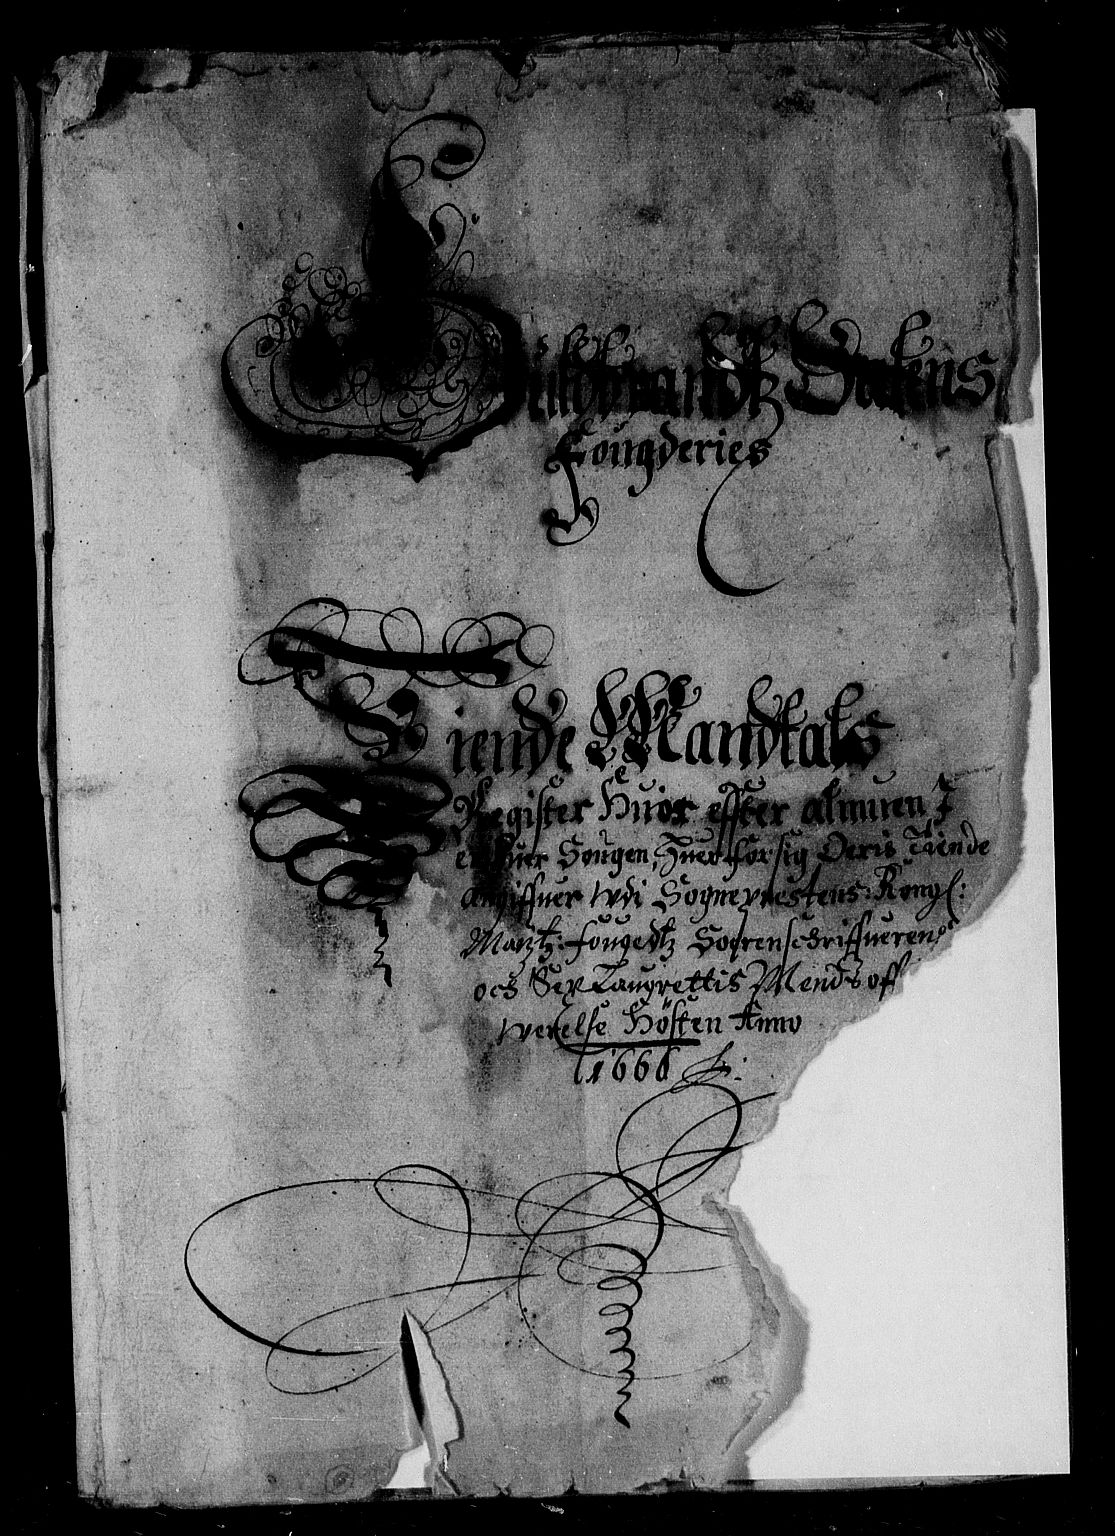 Gulbrandtz Dalens
Fougderies
Tiende Mandtals
Register Huor effter almuen J
er huer Sougen, Huer for sig Deris Tiende
angiffuer wdi Sogneprestens: Kongl:
Maÿtz: fougedtz Sorenschriffuerens
och Sex Laugrettis Mends off
werelse Hösten Anno
1666